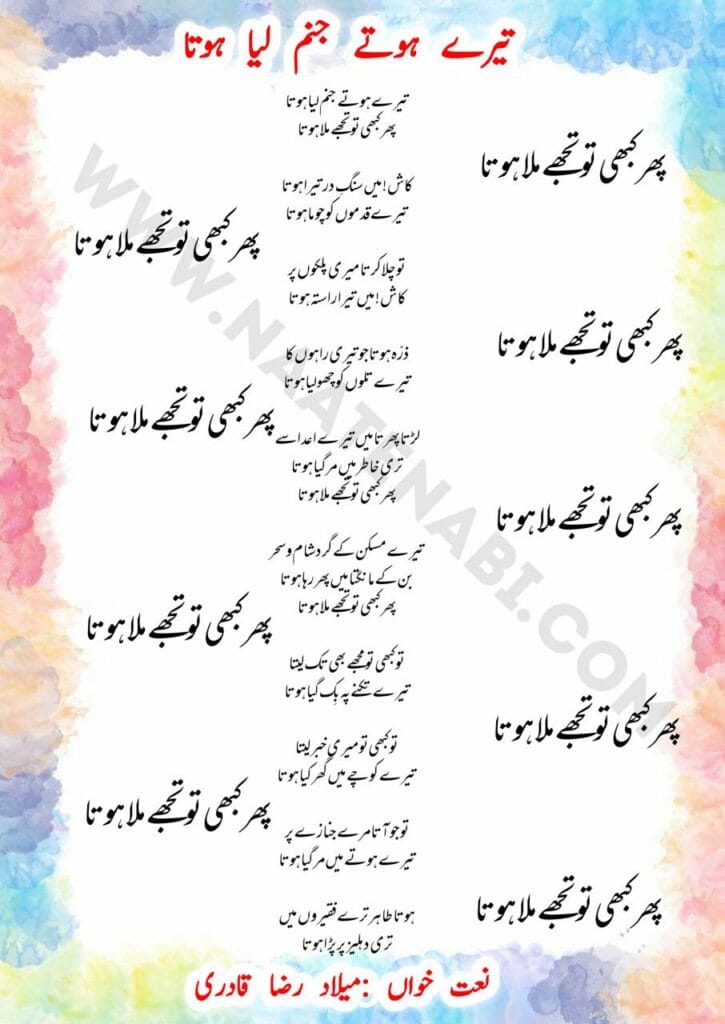 تیرے ہوتے جنم لیا ہوتا
تیرے ہوتے جنم لیا ہوتا
پھر کبھی تو تجھے ملا ہوتا
پھر کبھی تو تجھے ملا ہوتا
کاش! میں سنگِ در تیرا ہوتا
تیرے قدموں کو چوما ہوتا
پھر کبھی تو تجھے ملا ہوتا
تو چلا کرتا میری پلکوں پر
کاش! میں تیرا راستہ ہوتا
پھر کبھی تو تجھے ملا ہوتا
ذرّہ ہوتا جو تیری راہوں کا
تیرے تلوں کو چھو لیا ہوتا
پھر کبھی تو تجھے ملا ہوتا
لڑتا پھرتا میں تیرے اعدا سے
تری خاطر میں مر گیا ہوتا
پھر کبھی تو تجھے ملا ہوتا
پھر کبھی تو تجھے ملا ہوتا
تیرے مسکن کے گرد شام و سحر
بن کے مانگتا میں پھر رہا ہوتا
پھر کبھی تو تجھے ملا ہوتا
پھر کبھی تو تجھے ملا ہوتا
تو کبھی تو مجھے بھی تک لیتا
تیرے تکنے پہ بِک گیا ہوتا
پھر کبھی تو تجھے ملا ہوتا
تو کبھی تو میری خبر لیتا
تیرے کوچے میں گھر کیا ہوتا
پھر کبھی تو تجھے ملا ہوتا
تو جو آتا مرے جنازے پر
تیرے ہوتے میں مر گیا ہوتا
پھر کبھی تو تجھے ملا ہوتا
ہوتا طاہر ترے فقیروں میں
تری دہلیز پر پڑا ہوتا
نعت خواں :میلاد رضا قادری
WWW.NAATENABI.COM